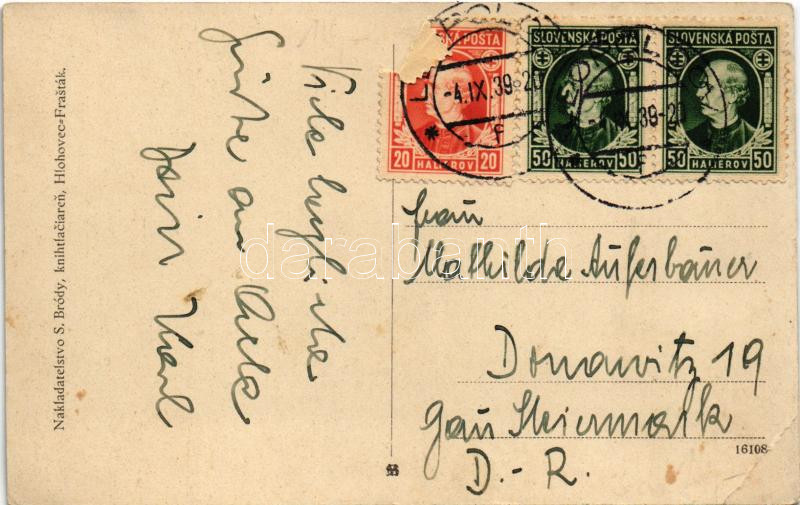 Nakladatelstvo S. Bródy, knihtlačiareň, Hlohovec-Frašták.
Viele herzliche
Grüße an
Dein Karl
SLOVENSKÁ POŠTA
-4.IX.39-20
F
20 HALIEROV 20
SLOVENSKÁ POŠTA
50 HALIEROV 50
SLOVENSKÁ POŠTA
39-2
F
50 HALIEROV 50
darabanth
Frau
Mathilde Auferbauer
Donawitz 19
Gau Steiermark
D.-R.
16108